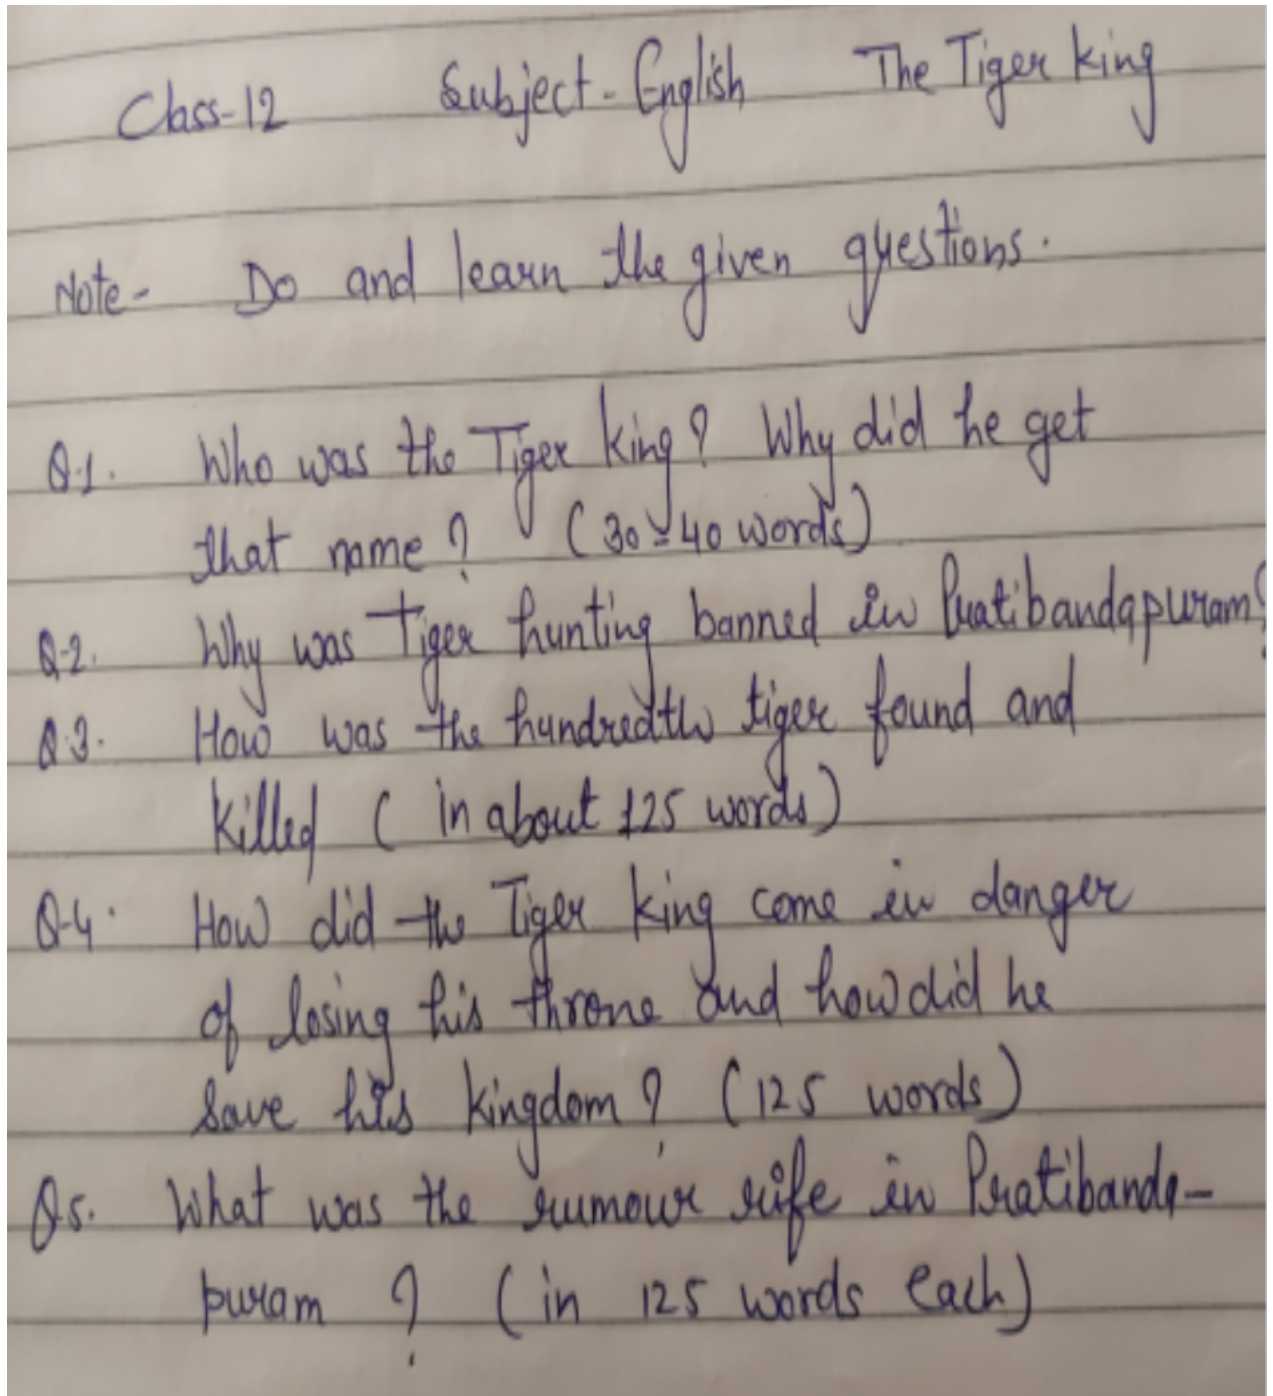 Class-12 Subject-English The Tiger King
Note- Do and learn the given questions.
Q.1. Who was the Tiger King? Why did he get
that name? (30-40 words)
Q.2. Why was Tiger hunting banned in Pratibandapuram?
Q.3. How was the hundredth tiger found and
killed (in about 125 words)
Q.4. How did the Tiger King come in danger
of losing his throne and how did he
save his kingdom? (125 words)
Q5. What was the rumour rife in Pratibanda-
puram? (in 125 words each)